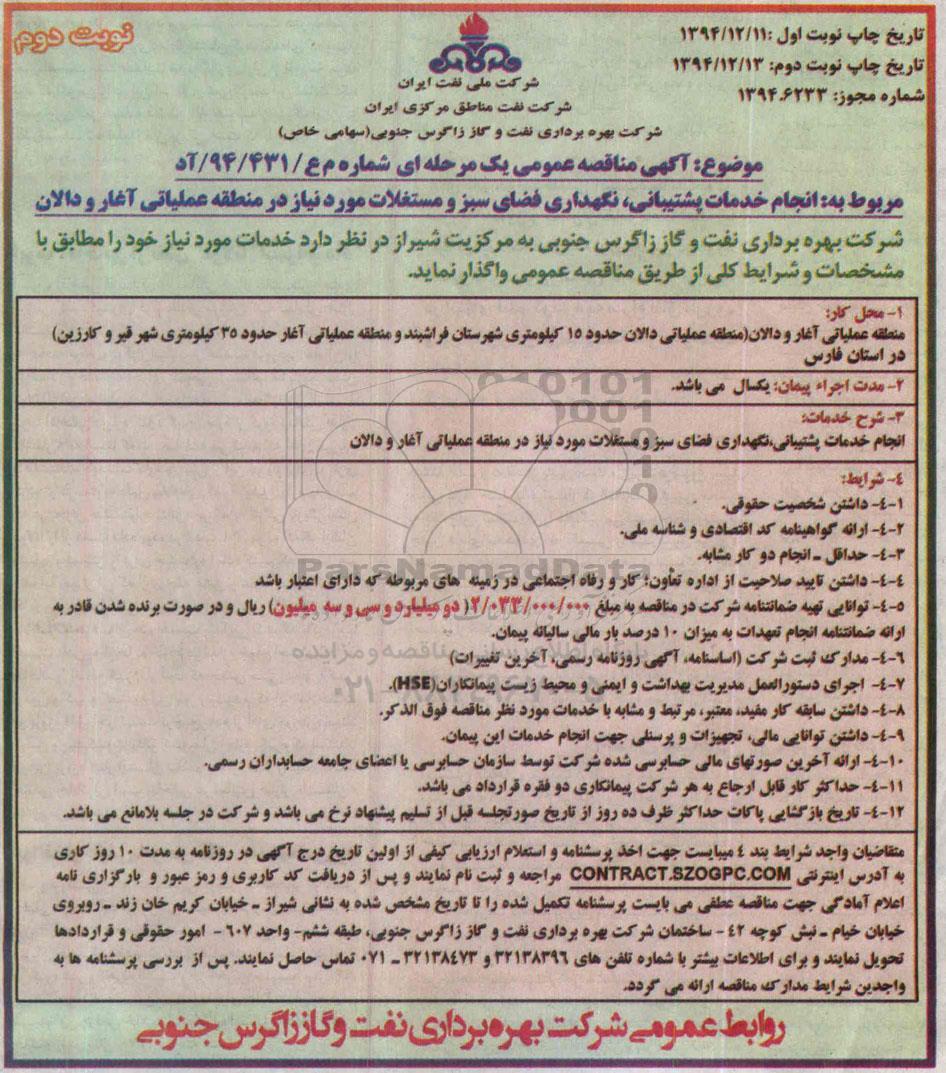 تاریخ چاپ نوبت اول :۱۳۹۴/۱۲/۱۱
تاریخ چاپ نوبت دوم: ۱۳۹۴/۱۲/۱۳
شماره مجوز: ۱۳۹۴.۶۲۳۳
نوبت دوم
شرکت ملی نفت ایران
شرکت نفت مناطق مرکزی ایران
شرکت بهره برداری نفت و گاز زاگرس جنوبی(سهامی خاص)
موضوع: آگهی مناقصه عمومی یک مرحله ای شماره م ع/۹۴/۴۳۱/آد
مربوط به: انجام خدمات پشتیبانی، نگهداری فضای سبز و مستغلات مورد نیاز در منطقه عملیاتی آغار و دالان
شرکت بهره برداری نفت و گاز زاگرس جنوبی به مرکزیت شیراز در نظر دارد خدمات مورد نیاز خود را مطابق با
مشخصات و شرایط کلی از طریق مناقصه عمومی واگذار نماید.
۱- محل کار:
منطقه عملیاتی آغار و دالان(منطقه عملیاتی دالان حدود ۱۵ کیلومتری شهرستان فراشبند و منطقه عملیاتی آغار حدود ۳۵ کیلومتری شهر قیر و کارزین)
در استان فارس
۲- مدت اجراء پیمان: یکسال می باشد.
۳- شرح خدمات:
انجام خدمات پشتیبانی،نگهداری فضای سبز و مستغلات مورد نیاز در منطقه عملیاتی آغار و دالان
۴- شرایط:
۴-۱- داشتن شخصیت حقوقی.
۴-۲- ارائه گواهینامه کد اقتصادی و شناسه ملی.
۴-۳- حداقل - انجام دو کار مشابه.
۴-۴- داشتن تایید صلاحیت از اداره تعاون، کار و رفاه اجتماعی در زمینه های مربوطه که دارای اعتبار باشد
۴-۵- توانایی تهیه ضمانتنامه شرکت در مناقصه به مبلغ ۲/۰۳۳/۰۰۰/۰۰۰( دو میلیارد و سی و سه میلیون) ریال و در صورت برنده شدن قادر به
ارائه ضمانتنامه انجام تعهدات به میزان ۱۰ درصد بار مالی سالیانه پیمان.
۴-۶- مدارک ثبت شرکت (اساسنامه، آگهی روزنامه رسمی، آخرین تغییرات)
۴-۷- اجرای دستورالعمل مدیریت بهداشت و ایمنی و محیط زیست پیمانکاران(HSE).
۴-۸- داشتن سابقه کار مفید، معتبر، مرتبط و مشابه با خدمات مورد نظر مناقصه فوق الذکر.
۴-۹- داشتن توانایی مالی، تجهیزات و پرسنلی جهت انجام خدمات این پیمان.
۴-۱۰- ارائه آخرین صورتهای مالی حسابرسی شده شرکت توسط سازمان حسابرسی یا اعضای جامعه حسابداران رسمی.
۴-۱۱- حداکثر کار قابل ارجاع به هر شرکت پیمانکاری دو فقره قرارداد می باشد.
۴-۱۲- تاریخ بازگشایی پاکات حداکثر ظرف ده روز از تاریخ صورتجلسه قبل از تسلیم پیشنهاد نرخ می باشد و شرکت در جلسه بلامانع می باشد.
متقاضیان واجد شرایط بند ۴ میبایست جهت اخذ پرسشنامه و استعلام ارزیابی کیفی از اولین تاریخ درج آگهی در روزنامه به مدت ۱۰ روز کاری
به آدرس اینترنتی CONTRACT.SZOGPC.COM مراجعه و ثبت نام نمایند و پس از دریافت کد کاربری و رمز عبور و بارگزاری نامه
اعلام آمادگی جهت مناقصه عطفی می بایست پرسشنامه تکمیل شده را تا تاریخ مشخص شده به نشانی شیراز - خیابان کریم خان زند - روبروی
خیابان خیام - نبش کوچه ۴۲ - ساختمان شرکت بهره برداری نفت و گاز زاگرس جنوبی، طبقه ششم- واحد ۶۰۷ - امور حقوقی و قراردادها
تحویل نمایند و برای اطلاعات بیشتر با شماره تلفن های ۳۲۱۳۸۳۹۶ و ۳۲۱۳۸۴۷۳ - ۰۷۱ تماس حاصل نمایند. پس از بررسی پرسشنامه ها به
واجدین شرایط مدارک مناقصه ارائه می گردد.
روابط عمومی شرکت بهره برداری نفت و گاز زاگرس جنوبی
ParsNamadData